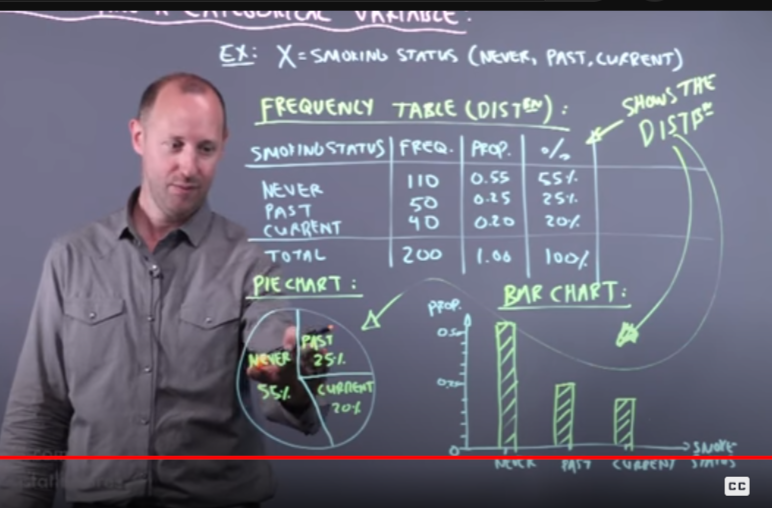 A CATEGORICAL VARIABLE:
EX: X = SMOKING STATUS (NEVER, PAST, CURRENT)
FREQUENCY TABLE (DISTBN):
SHOWS THE
DISTBN
SMOKING STATUS FREQ. PROP. %
NEVER 110 0.55 55%
PAST 50 0.25 25%
CURRENT 40 0.20 20%
TOTAL 200 1.00 100%
PIE CHART:
PAST
25%
NEVER
55%
CURRENT
20%
BAR CHART:
PROP.
0
NEVER PAST CURRENT
SMOKE
STATUS
CC